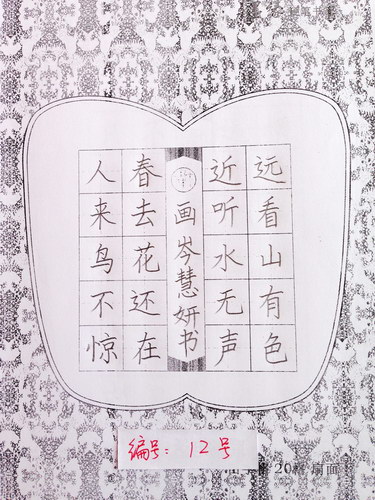 远看山有色
近听水无声
画 岑慧妍书
春去花还在
人来鸟不惊
编号：12号